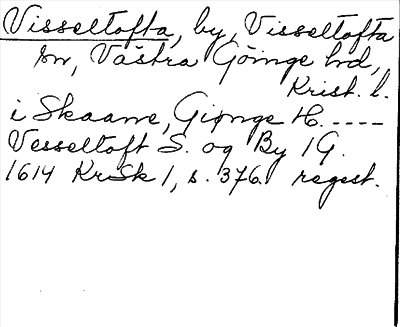 Visseltofta, by, Visseltofta
sn, Västra Göinge hd,
Krist. l.
i Skaane, Giønge H. ----
Vesseltoft S. og By 1G.
1614 KrSk 1, s. 376. regest.